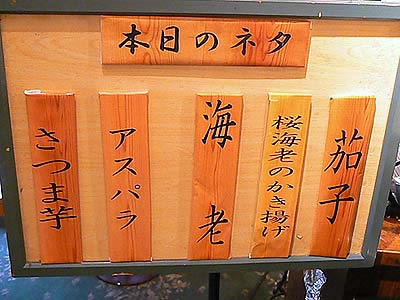 本日のネタ
茄子
桜海老のかき揚げ
海老
アスパラ
さつま芋